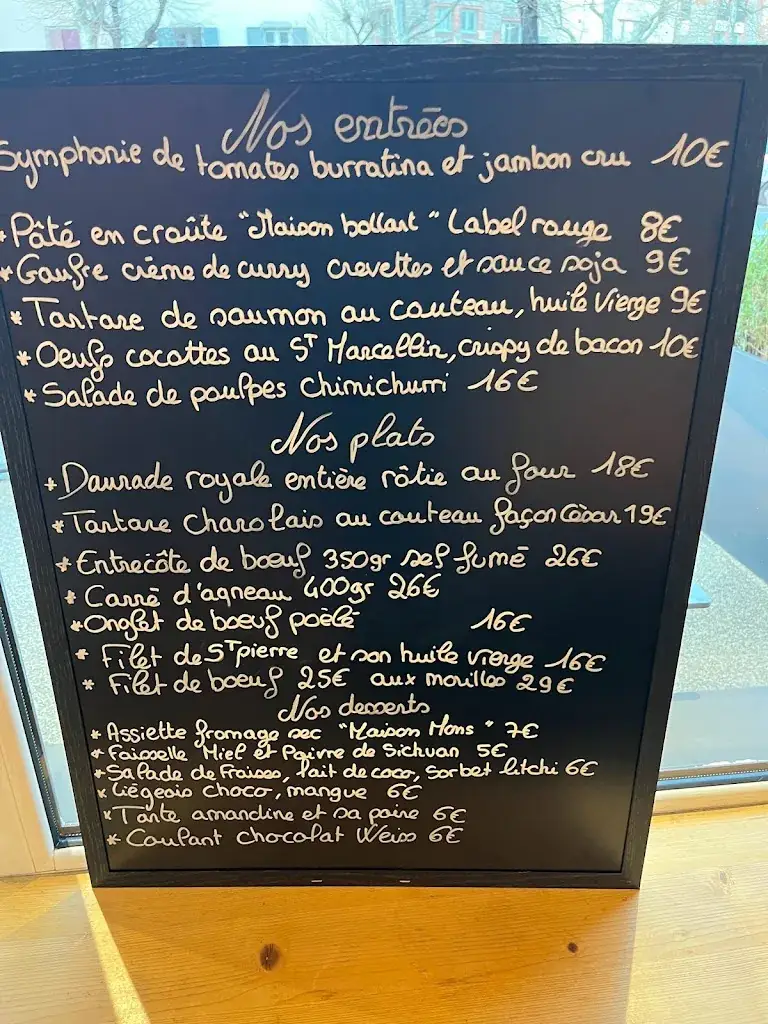 Nos entrées
Symphonie de tomates burratina et jambon cru 10€
*Pâté en croûte "Maison bollart" Label rouge 8€
*Gaufre crème de curry crevettes et sauce soja 9€
*Tartare de saumon au couteau, huile Vierge 9€
*Oeufs cocottes au ST Marcellin, crispy de bacon 10€
*Salade de poulpes chimichurri 16€
Nos plats
*Daurade royale entière rôtie au four 18€
*Tartare charolais au couteau façon César 19€
*Entrecôte de bœuf 350gr sel fumé 26€
*Carré d'agneau 400gr 26€
*Onglet de bœuf poêlé 16€
* Filet de ST pierre et son huile vierge 16€
* Filet de bœuf 25€ aux morilles 29€
Nos desserts
*Assiette fromage sec "Maison Mons" 7€
*Faisselle Miel et Poivre de Sichuan 5€
*Salade de Fraises, lait de coco, Sorbet litchi 6€
*Liégeois choco, mangue 6€
*Tarte amandine et sa poire 6€
*Coulant chocolat Weiss 6€